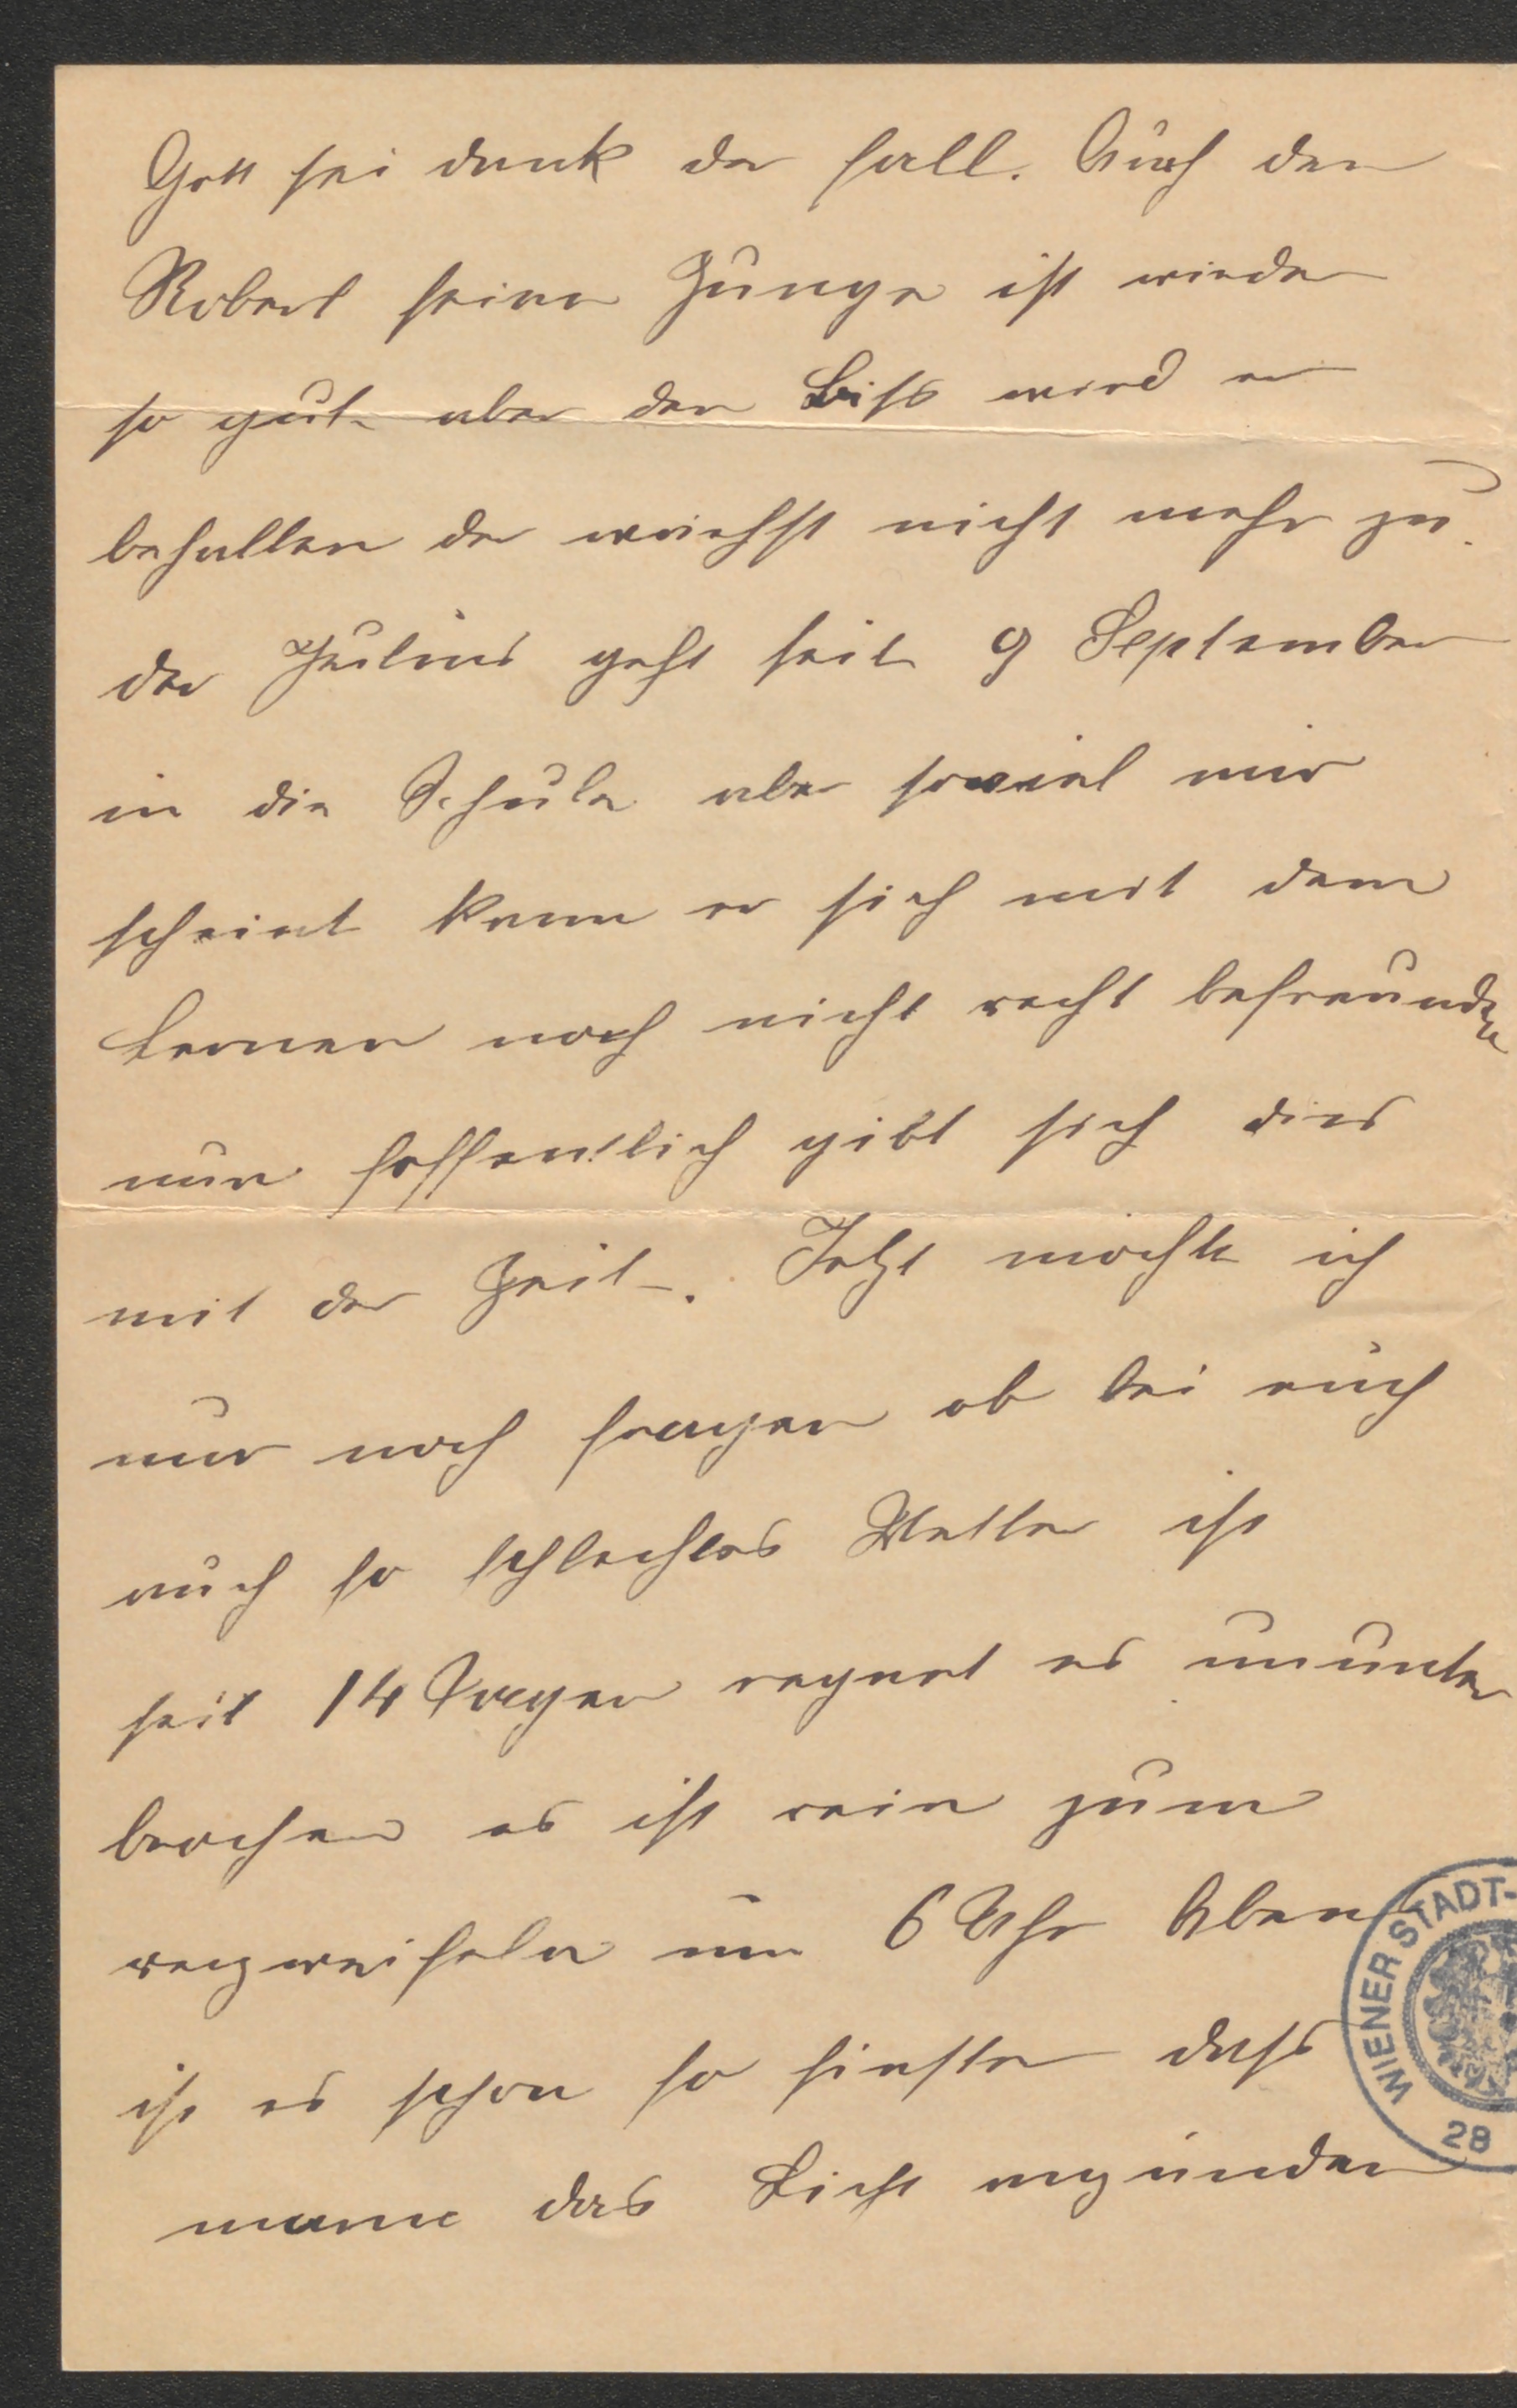 Gott sei dank der fall. Auch den
Robert seine Zunge ist wieder
so gut aber den Biss wird er
behalten der wächst nicht mehr zu.
der Julius geht seit 9 September
in die Schule aber soviel mir
scheint kann er sich mit dem
Lernen noch nicht recht befreunden
nun hoffentlich gibt sich dies
mit der Zeit. Jetzt möchte ich
nur noch fragen ob bei euch
auch so schlechtes Wetter ist
seit 14 Tagen regnet es ununter
brochen es ist rein zum
verzweifeln um 6 Uhr Abend
ist es schon so finster dass
mann das Licht anzünden
WIENER STADT-
28